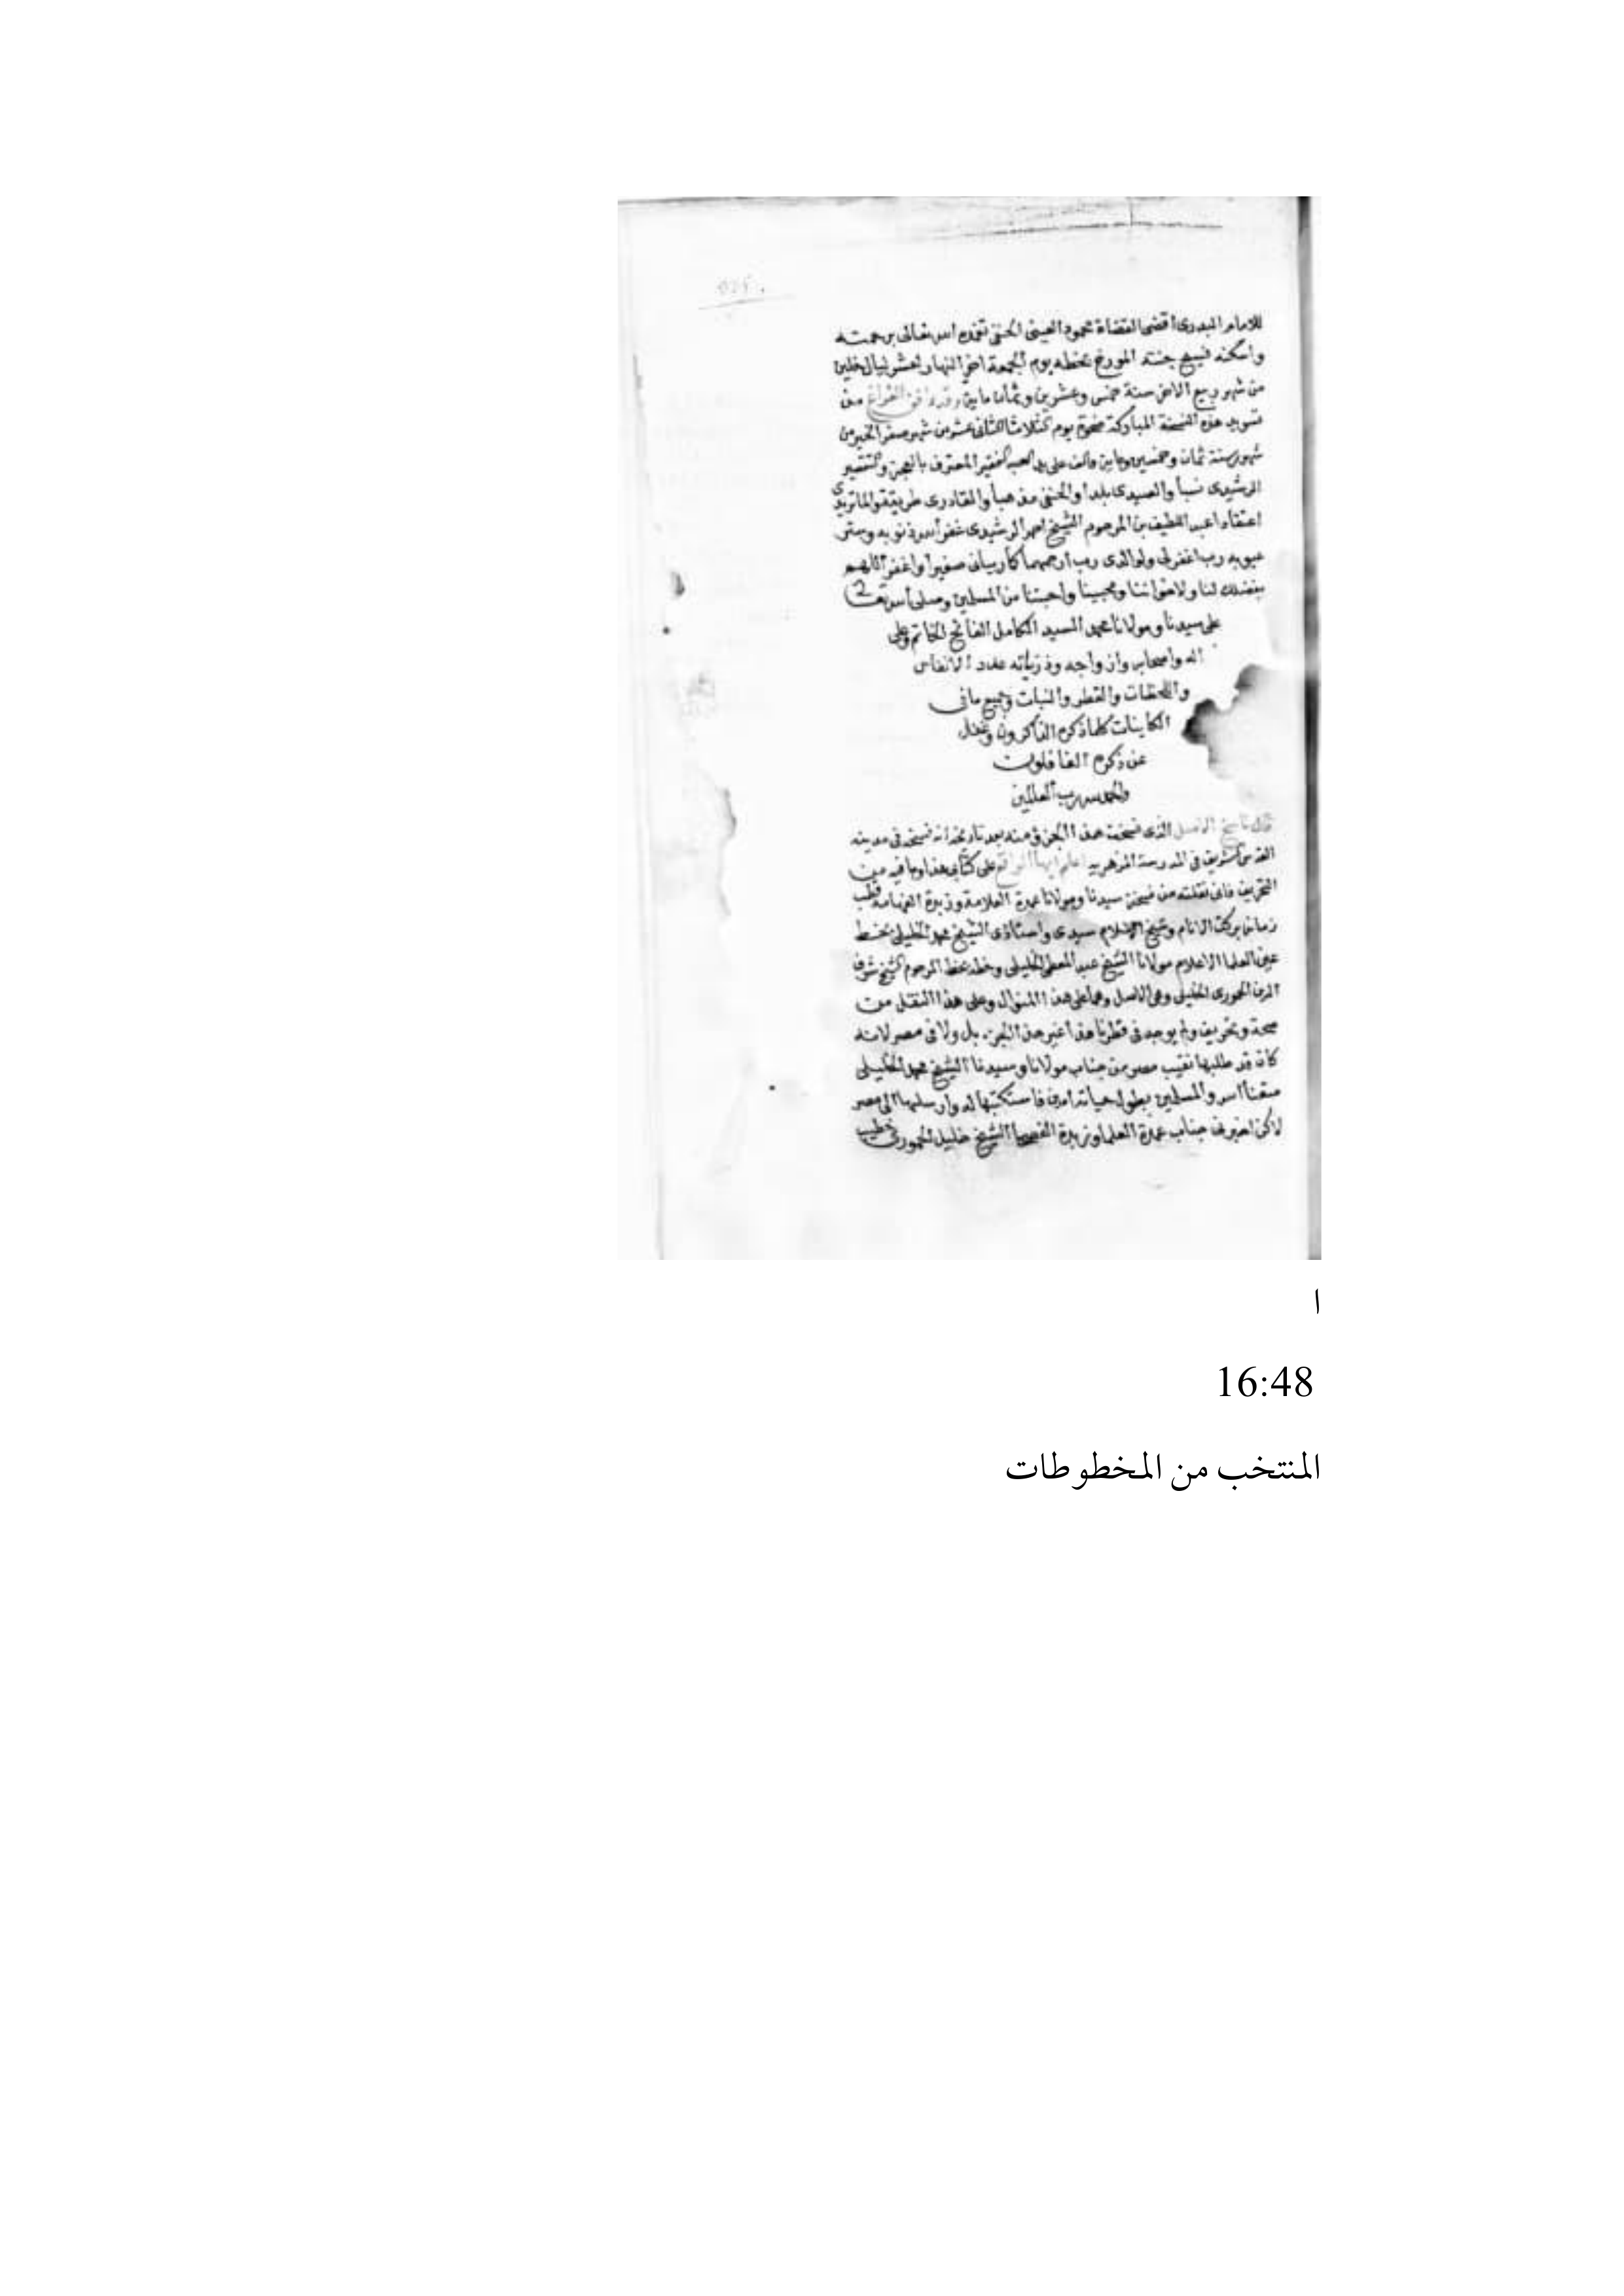 للامام البدرى اقضى القضاة محمود العينى الحنفى تغمده الله تعالى برحمته
واسكنه فسيح جنته المورخ بخطه يوم الجمعة اخر النهار لعشر ليال خلين
من شهر ربيع الاخر سنة خمس وعشرين وثمان ماية وقد وافق الفراغ من
تسويد هذه النسخة المباركة ضحوة يوم الثلاثا الثانى عشر من شهر صفر الخير من
شهور سنة ثمان وخمسين وماية والف على يد العبد الفقير المعترف بالعجز والتقصير
الرشيدى نسبا بلدا والحنفى مذهبا والقادرى طريقة والماتريدى
اعتقادا عبد اللطيف بن المرحوم الشيخ احمد الرشيدى غفر الله ذنوبه وستر
عيوبه رب اغفر لى ولوالدى رب ارحمهما كما ربيانى صغيرا واغفر اللهم
بفضلك لنا ولاخواننا ومحبينا واحبتنا من المسلمين وصلى الله
على سيدنا ومولانا محمد السيد الكامل الفاتح الخاتم وعلى
اله واصحابه وازواجه وذرياته عدد الانفاس
واللحظات والقطر والنبات وجميع مافى
الكاينات كلما ذكره الذاكرون وغفل
عن ذكره الغافلون
والحمد لله رب العالمين
قال ناسخ الاصل الذى نسخت هذا الجزؤ منه بعد تاريخه انه نسخه فى مدينه
القدس الشريف فى المدرسة المزهريه اعلم ايها الواقع على كتابى هذا وما فيه من
التحريف فانى نقلته من نسخة سيدنا ومولانا عمدة العلامة وزبدة الفهامه قطب
زماننا بركت الانام وشيخ الاسلام سيدى واستاذى الشيخ محمد الخليلى بخط
عين العلما الاعلام مولانا الشيخ عبد المعطى الخليلى وخطه بخط المرحوم الشيخ شرف
الدين الخليلى وهى الاصل وهما على هذا المنوال وعلى هذا النقل من
صحة وتحريف ولم يوجد فى قطرنا هذا غير هذا الجزء بل ولا فى مصر لانه
كان قد طلبها نقيب مصر من جناب مولانا وسيدنا الشيخ محمد الخليلى
متعنا الله والمسلمين بطول حياته امين فاستكتبها له وارسلها الى مصر
لاكن اخبرنا جناب عمدة العلما وزبدة الفصحا الشيخ خليل خطيب
ا
16:48
المنتخب من المخطوطات